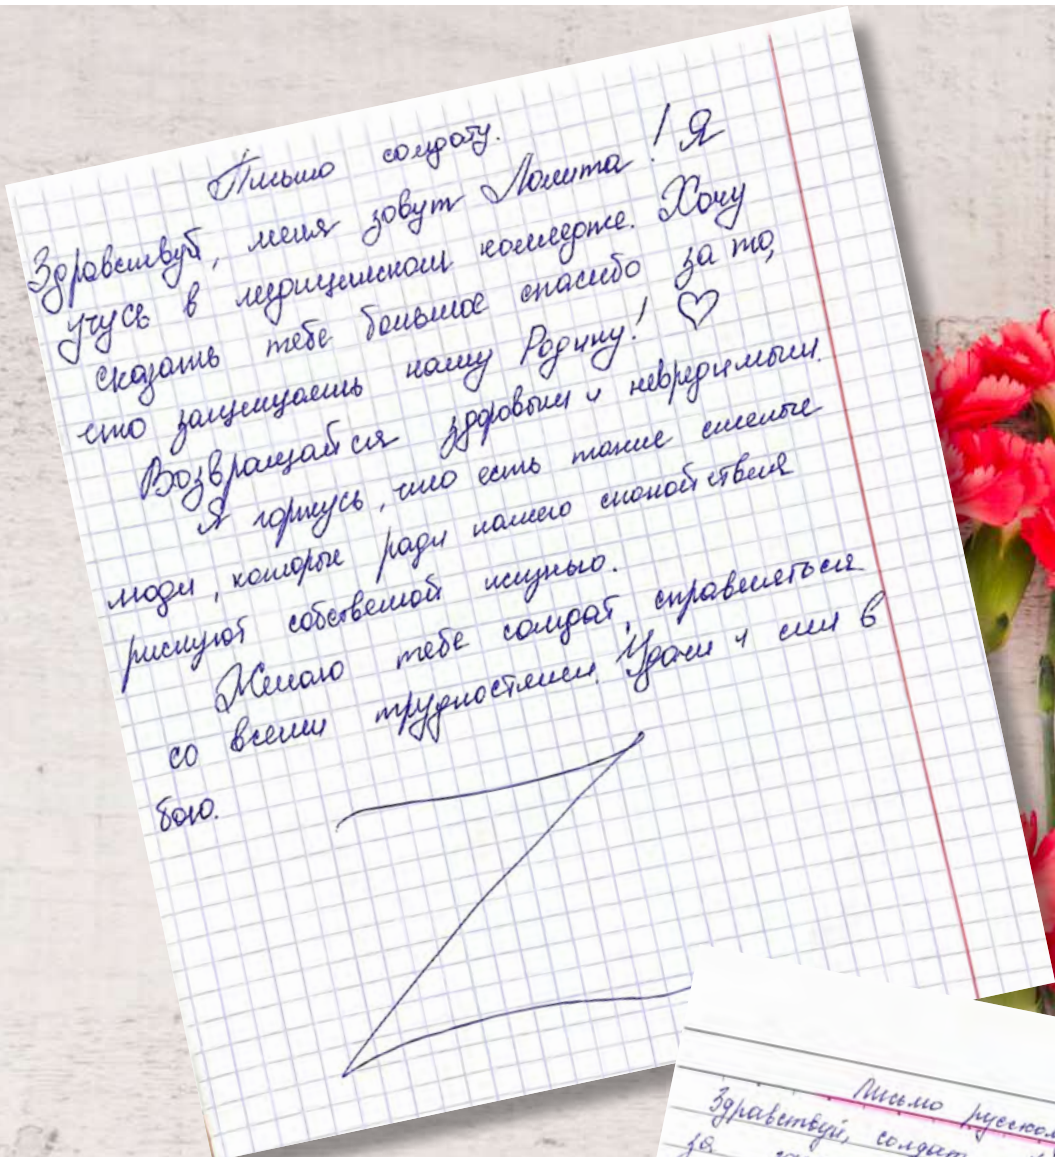 Письмо солдату.
Здравствуй, меня зовут Лолита! Я
учусь в медицинском колледже. Хочу
сказать тебе большое спасибо за то,
что защищаешь нашу Родину! ♡
Возвращайся здоровым и невредимым.
Я горжусь, что есть такие смелые
люди, которые ради нашего спокойствия
рискуют собственной жизнью.
Желаю тебе солдат, справляться
со всеми трудностями. Удачи и сил в
бою.
Z
Письмо русском
Здравствуй, солдат
за